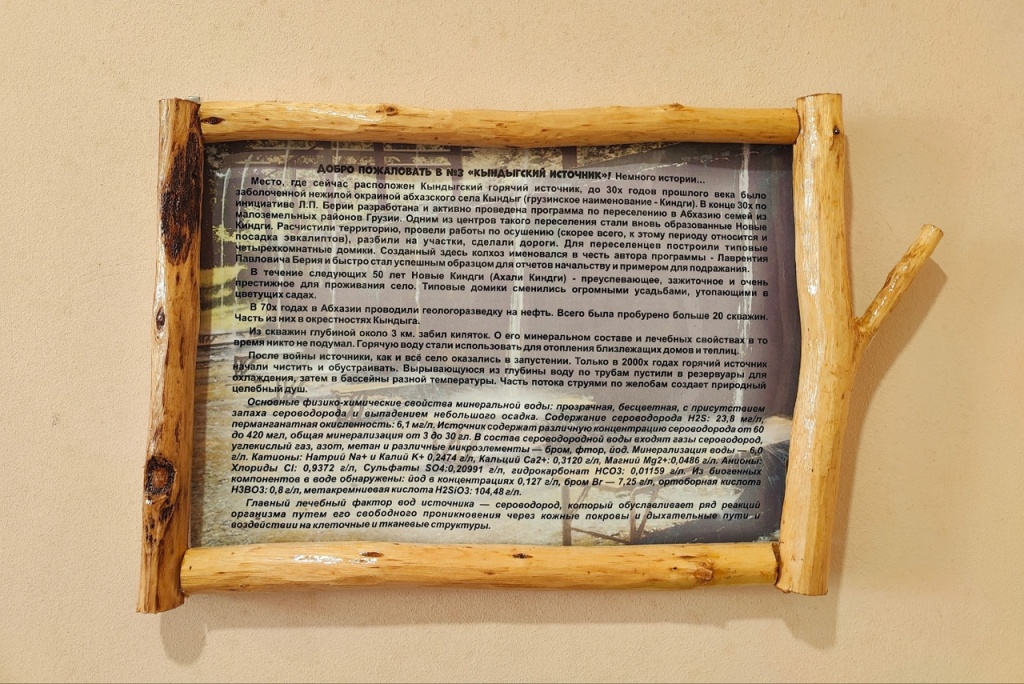 ДОБРО ПОЖАЛОВАТЬ В №3 «КЫНДЫГСКИЙ ИСТОЧНИК»! Немного истории...
Место, где сейчас расположен Кындыгский горячий источник, до 30х годов прошлого века было
заболоченной нежилой окраиной абхазского села Кындыг (грузинское наименование - Киндги). В конце 30х по
инициативе Л.П. Берии разработана и активно проведена программа по переселению в Абхазию семей из
малоземельных районов Грузии. Одним из центров такого переселения стали вновь образованные Новые
Киндги. Расчистили территорию, провели работы по осушению (скорее всего, к этому периоду относится и
посадка эвкалиптов), разбили на участки, сделали дороги. Для переселенцев построили типовые
четырехкомнатные домики. Созданный здесь колхоз именовался в честь автора программы - Лаврентия
Павловича Берия и быстро стал успешным образцом для отчетов начальству и примером для подражания.
В течение следующих 50 лет Новые Киндги (Ахали Киндги) - преуспевающее, зажиточное и очень
престижное для проживания село. Типовые домики сменились огромными усадьбами, утопающими в
цветущих садах.
В 70х годах в Абхазии проводили геологоразведку на нефть. Всего была пробурено больше 20 скважин.
Часть из них в окрестностях Кындыга.
Из скважин глубиной около 3 км. забил кипяток. О его минеральном составе и лечебных свойствах в то
время никто не подумал. Горячую воду стали использовать для отопления близлежащих домов и теплиц.
После войны источники, как и всё село оказались в запустении. Только в 2000х годах горячий источник
начали чистить и обустраивать. Вырывающуюся из глубины воду по трубам пустили в резервуары для
охлаждения, затем в бассейны разной температуры. Часть потока струями по желобам создает природный
целебный душ.
Основные физико-химические свойства минеральной воды: прозрачная, бесцветная, с присутствием
запаха сероводорода и выпадением небольшого осадка. Содержание сероводорода H2S: 23,8 мг/л,
перманганатная окисленность: 6,1 мг/л. Источник содержат различную концентрацию сероводорода от 60
до 420 мгл, общая минерализация от 3 до 30 гл. В состав сероводородной воды входят газы сероводород,
углекислый газ, азот, метан и различные микроэлементы — бром, фтор, йод. Минерализация воды — 6,0
г/л. Катионы: Натрий Na+ и Калий K+ 0,2474 г/л, Кальций Ca2+: 0,3120 г/л, Магний Mg2+:0,0486 г/л. Анионы:
Хлориды Cl: 0,9372 г/л, Сульфаты SO4:0,20991 г/л, гидрокарбонат HCO3: 0,01159 г/л. Из биогенных
компонентов в воде обнаружены: йод в концентрациях 0,127 г/л, бром Br — 7,25 г/л, ортоборная кислота
H3BO3: 0,8 г/л, метакремниевая кислота H2SiO3: 104,48 г/л.
Главный лечебный фактор вод источника — сероводород, который обуславливает ряд реакций
организма путем его свободного проникновения через кожные покровы и дыхательные пути и
воздействии на клеточные и тканевые структуры.